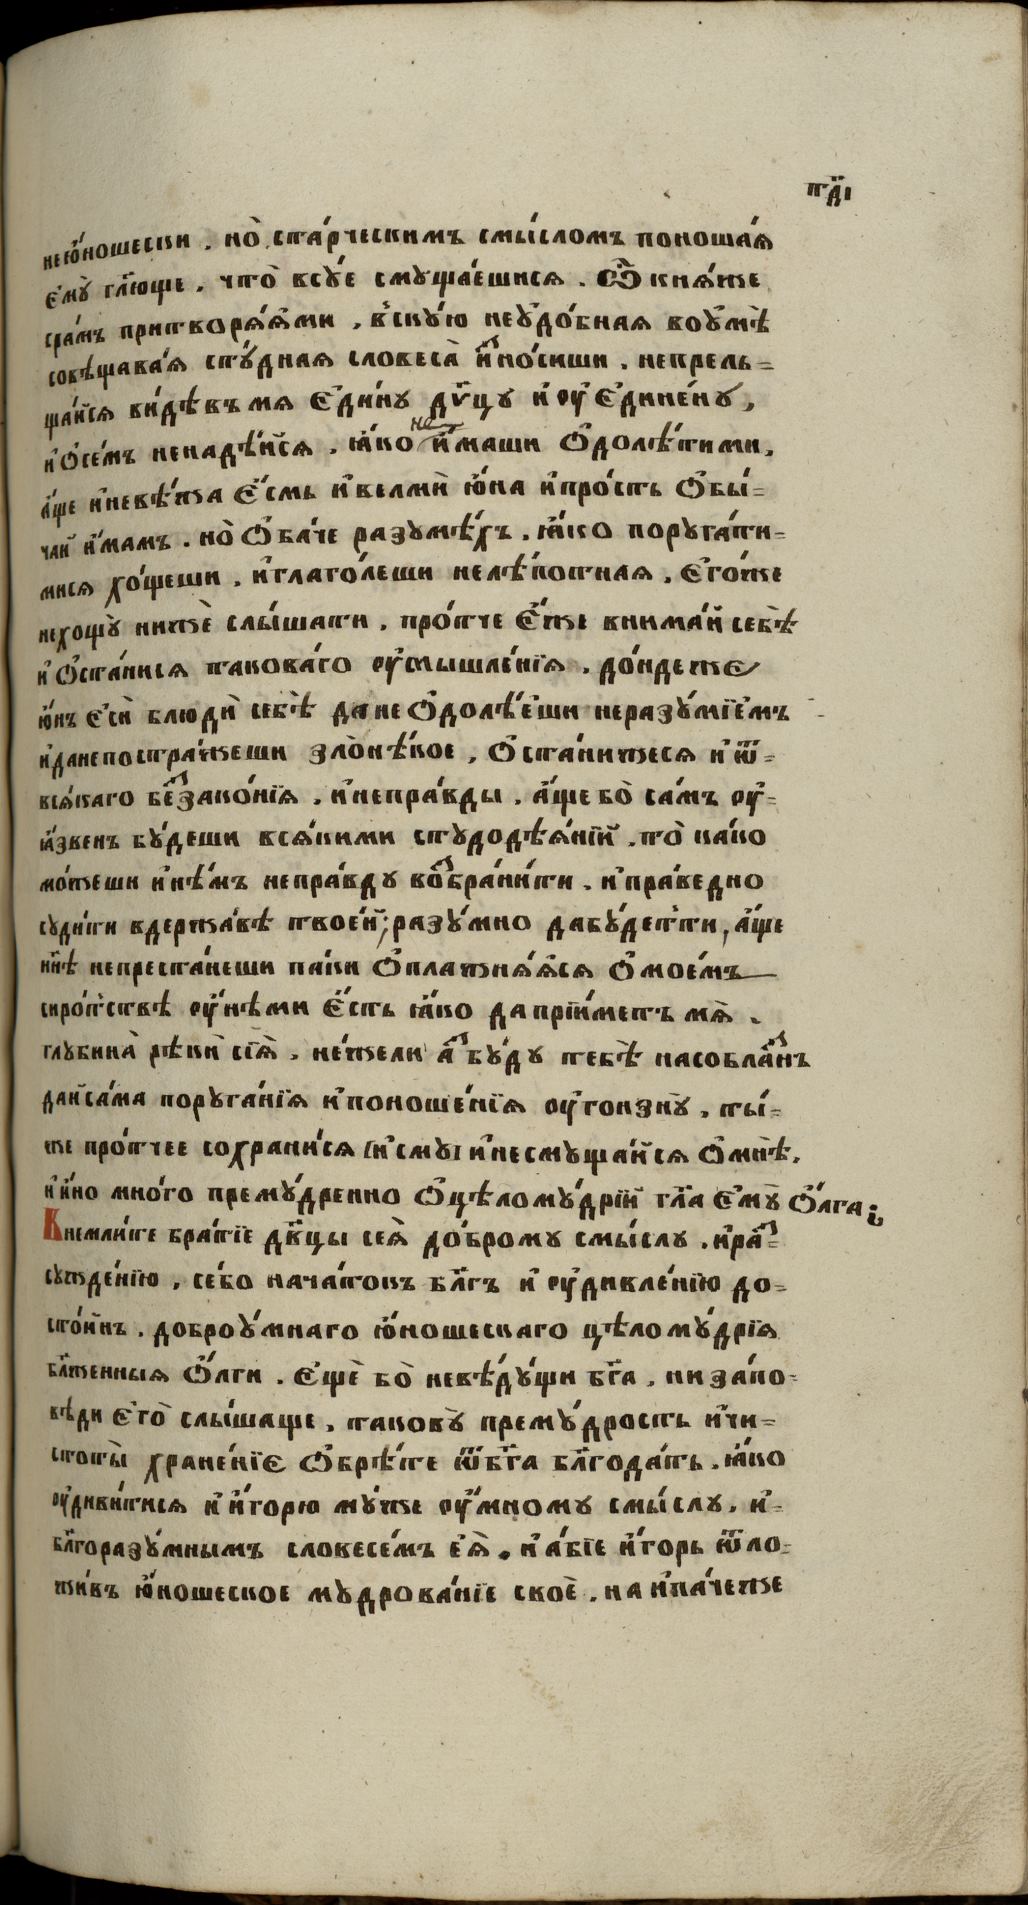 нею҆́ношески . но̀ ста́рческимъ смы́сломъ поноша́я
є҆мꙋ̀ гл҃юще . что̀ всꙋ́е смꙋща́ешися . Ѽ кня́же
сра́мъ притворя́ѧ҆ ми , в̾скꙋ́ю неꙋдо́бная воꙋ҆мѣ̀
совѣщава́я стꙋ́дная словеса̀ и҆зно́сиши . непрель=
ща́йся ви́дѣвъ мя є҆ди́нꙋ дв҃цꙋ и҆ ᲂу҆є҆дине́нꙋ ,
и҆ ѡ҆се́мъ ненадѣ́йся . ꙗ҆́ко не и҆́маши ѡ҆долѣ́тими .
а҆́ще и҆невѣ́жа є҆́смь и҆велмѝ ю҆́на и҆про́сть ѡ҆бы́=
чаи҆ и҆́мамъ . но̀ ѡ҆ба́че разꙋмѣ́хъ . ꙗ҆́ко порꙋга́ти=
мися хо́щеши . и҆глаго́леши нелѣ́потная . є҆го́же
нехощꙋ̀ нижѐ слы́шати . про́тче є҆́же внима́й себѣ̀
и҆ ѡ҆ста́нися такова́го ᲂу҆мышле́нїя . до́ндеже
ю҆́нъ є҆сѝ блюдѝ себѐ да не ѡ҆долѣ́еши неразꙋ́мїемъ
и҆данепостра́жеши зло̀нѣ́кое , ѡ҆ста́нижеся и҆ ѿ=
вся́каго беззако́нїя . и҆непра́вды . а҆́ще бо̀ са́мъ ᲂу҆=
ꙗ҆́звенъ бꙋ́деши вся́кими стꙋдодѣѧ́нїй . то̀ ка́ко
мо́жеши и҆нѣ́мъ непра́вдꙋ возбрани́ти . и҆пра́ведно
сꙋди́ти вдержа́вѣ твое́й ; разꙋ́мно дабꙋ́деть ти , а҆́ще
нн҃ѣ непреста́неши па́ки ѡ҆плажня́ѧся ѡ҆мое́мъ
сиро́тствѣ ᲂу҆́нѣ ми є҆́сть ꙗ҆́ко да прїи́меть мѧ̀ .
глꙋбина̀ рѣкѝ сїѧ̀ . не́жели а҆́зъ бꙋ́дꙋ тебѣ̀ насобла́знъ
даи҆са́ма порꙋга́нїя и҆поноше́нїя ᲂу҆гонзнꙋ̀ . ты́=
же про́тчее сохрани́ся и҆несмꙋща́йся ѡ҆мнѣ̀ .
и҆ и҆́но мно́го премꙋ́дренно ѡ҆цѣломꙋ́дрїи гл҃а є҆мꙋ̀ ѻ҆́лга ;
Внемли́те бра́тїе дв҃цы сеѧ̀ до́бромꙋ смы́слꙋ . и҆раз=
сꙋжде́нїю , се́бо нача́токъ бл҃гъ и҆ ᲂу҆дивле́нїю до=
сто́инъ . доброꙋ́мнаго ю҆́ношескаго цѣломꙋ́дрїя
бл҃женныя ѻ҆́лги . є҆щѐ бо̀ невѣ́дꙋщи бг҃а . ни за́по=
вѣди є҆го̀ слы́шаще , таковꙋ̀ премꙋ́дрость и҆чи=
стоты̀ хране́нїє ѡ҆брѣ́те ѿбг҃а бл҃года́ть . ꙗ҆́ко
ᲂу҆диви́тися и҆ и҆́горю мꙋ́же ᲂу҆́мномꙋ смы́слꙋ . и҆=
бл҃горазꙋ́мнымъ словесе́мъ еѧ̀ . и҆ а҆́бїе и҆́горь ѿло=
жи́въ ю҆́ношеское мꙋдрова́нїе своѐ . на и҆па́чеже